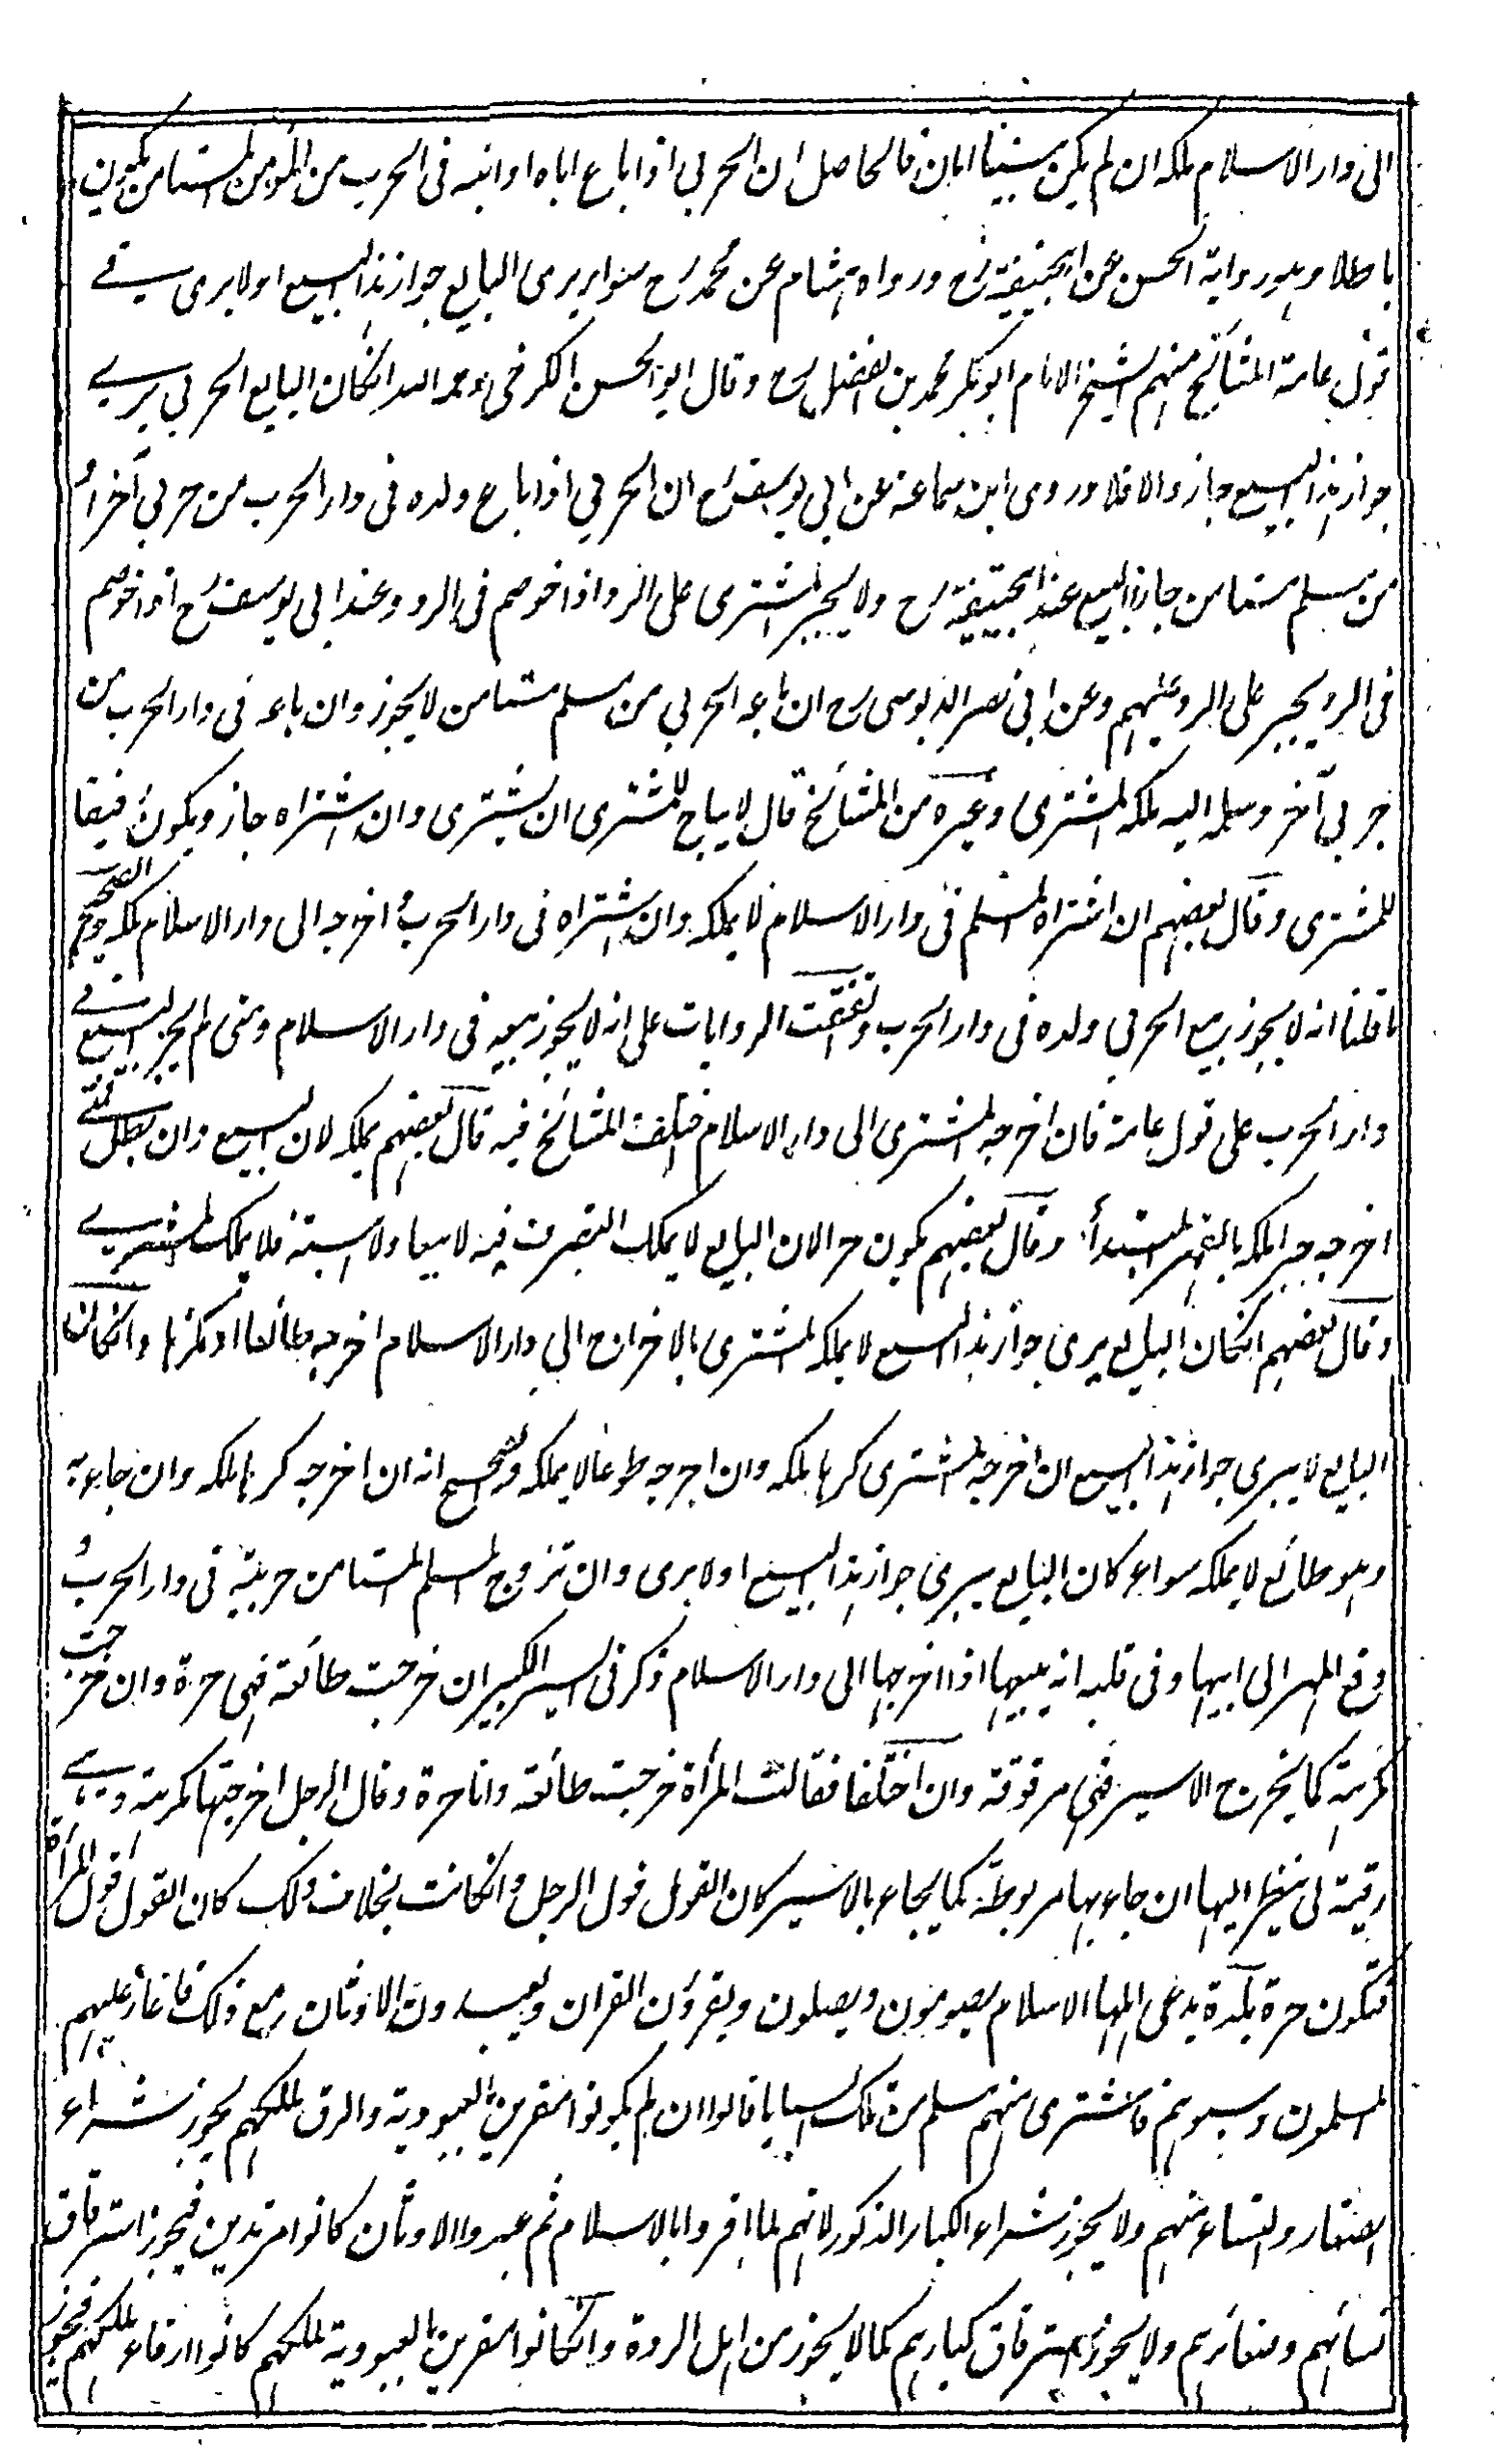 الى دار الاسلام ملكه ان لم يكن بينهما امان فالحاصل ان الحربي اذا باع اباه او ابنه فى الحرب من المؤمن المستامن يكون
باطلا وهو رواية الحسن عن ابيحنيفة رح ورواه هشام عن محمد رح سواء يرى البايع جواز هذا البيع او لا يرى فى
قول عامة المشائخ منهم الشيخ الامام ابو بكر محمد بن الفضل رح وقال ابو الحسن الكرخى رحمه الله انكان البايع الحربي يرى
جواز هذا البيع جاز والا فلا وروى ابن سماعة عن ابي يوسف رح ان الحربي اذا باع ولده فى دار الحرب من حربي آخر او
من مسلم مستامن جاز البيع عند ابيحنيفة رح ولا يجبر المشترى على الرد اذا خوصم فى الرد وعند ابى يوسف رح اذا خوصم
فى الرد يجبر على الرد عليهم وعن ابى نصر الدبوسى رح ان باعه الحربي من مسلم مستامن لا يجوز وان باعه فى دار الحرب من
حربى آخر وسلمه اليه ملكه المشترى وغيره من المشائخ قال لا يباح للمشترى ان يشترى وان اشتراه جاز ويكون رقيقا
للمشترى وقال بعضهم ان اشتراه المسلم فى دار الاسلام لا يملكه وان اشتراه فى دار الحرب و اخرجه الى دار الاسلام ملكه والصحيح
ما قلنا انه لا يجوز بيع الحربى ولده فى دار الحرب واتفقت الروايات على انه لا يجوز بيعه فى دار الاسلام ومتى لم يجز البيع فى
دار الحرب على قول عامة فان اخرجه المشترى الى دار الاسلام اختلف المشائخ فيه قال بعضهم يملكه لان البيع وان بطل فمتى
اخرجه جبرا ملكه بالقهر المبتدأ وقال بعضهم يكون حرا لان البايع لا يملك التصرف فيه لا بيعا ولا هبة فلا يملك المشترى
وقال بعضهم انكان البايع يرى جواز هذا البيع لا يملكه المشترى بالاخراج الى دار الاسلام اخرجه طائعا او مكرها وانكان
البايع لا يرى جواز هذا البيع ان اخرجه المشترى كرها ملكه وان اخرجه طوعا لا يملكه والصحيح انه ان اخرجه كرها ملكه وان جاء به
وهو طائع لا يملكه سواء كان البايع يرى جواز هذا البيع او لا يرى وان تزوج المسلم المستامن حربية فى دار الحرب و
دفع المهر الى ابيها وفى قلبه انه يبيعها اذا اخرجها الى دار الاسلام ذكر فى السير الكبير ان خرجت طائعة فهى حرة وان خرجت
كرهة كما يخرج الاسير فهى مرقوقة وان اختلفا فقالت المرأة خرجت طائعة وانا حرة وقال الرجل اخرجتها مكرهة وهى
رقيقة لى ينظر اليها ان جاء بها مربوطة كما يجاء بالاسير كان القول قول الرجل وانكانت بخلاف ذلك كان القول قول المرأة
فتكون حرة بلدة يدعى اهلها الاسلام يصومون ويصلون ويقرؤن القران ويعبدون الاوثان مع ذلك فاغار عليهم
المسلمون وسبوهم فاشترى منهم مسلم من تلك السبايا قالوا ان لم يكونوا مقرين بالعبودية والرق لملكهم يجوز شراء
الصغار والنساء منهم ولا يجوز شراء الكبار الذكور لانهم لما اقروا بالاسلام ثم عبدوا الاوثان كانوا مرتدين فيجوز استرقاق
نسائهم وصغائرهم ولا يجوز استرقاق كبارهم كما لا يجوز من اهل الردة وانكانوا مقرين بالعبودية لملكهم كانوا ارقاء لملكهم فيجوز